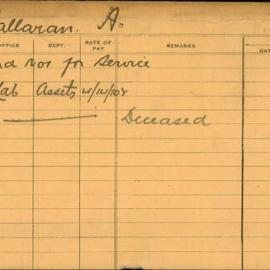 allaran. A.
OFFICE DEPT. RATE OF PAY REMARKS DAT
for Service
Assets 4/12/08
Deceased